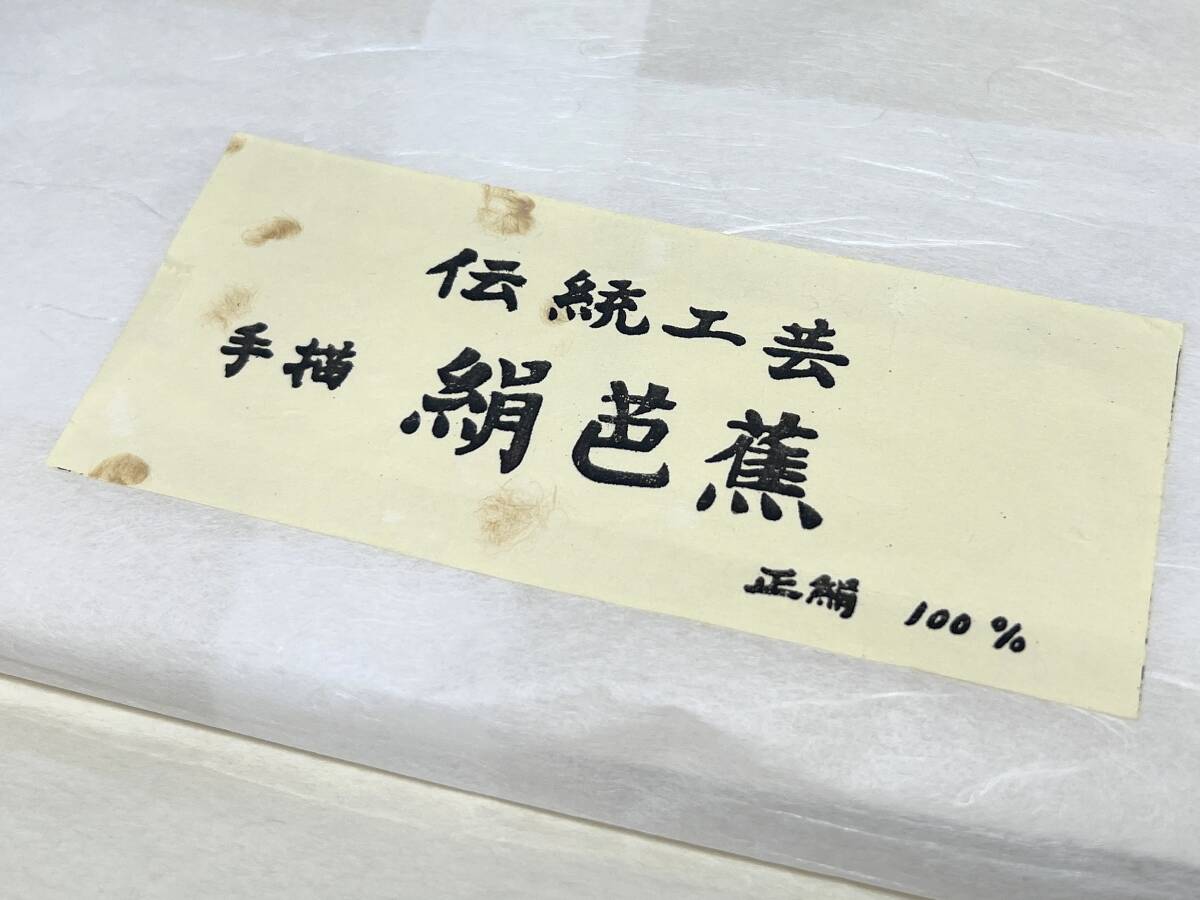 伝統工芸
手描 絹芭蕉
正絹 100%